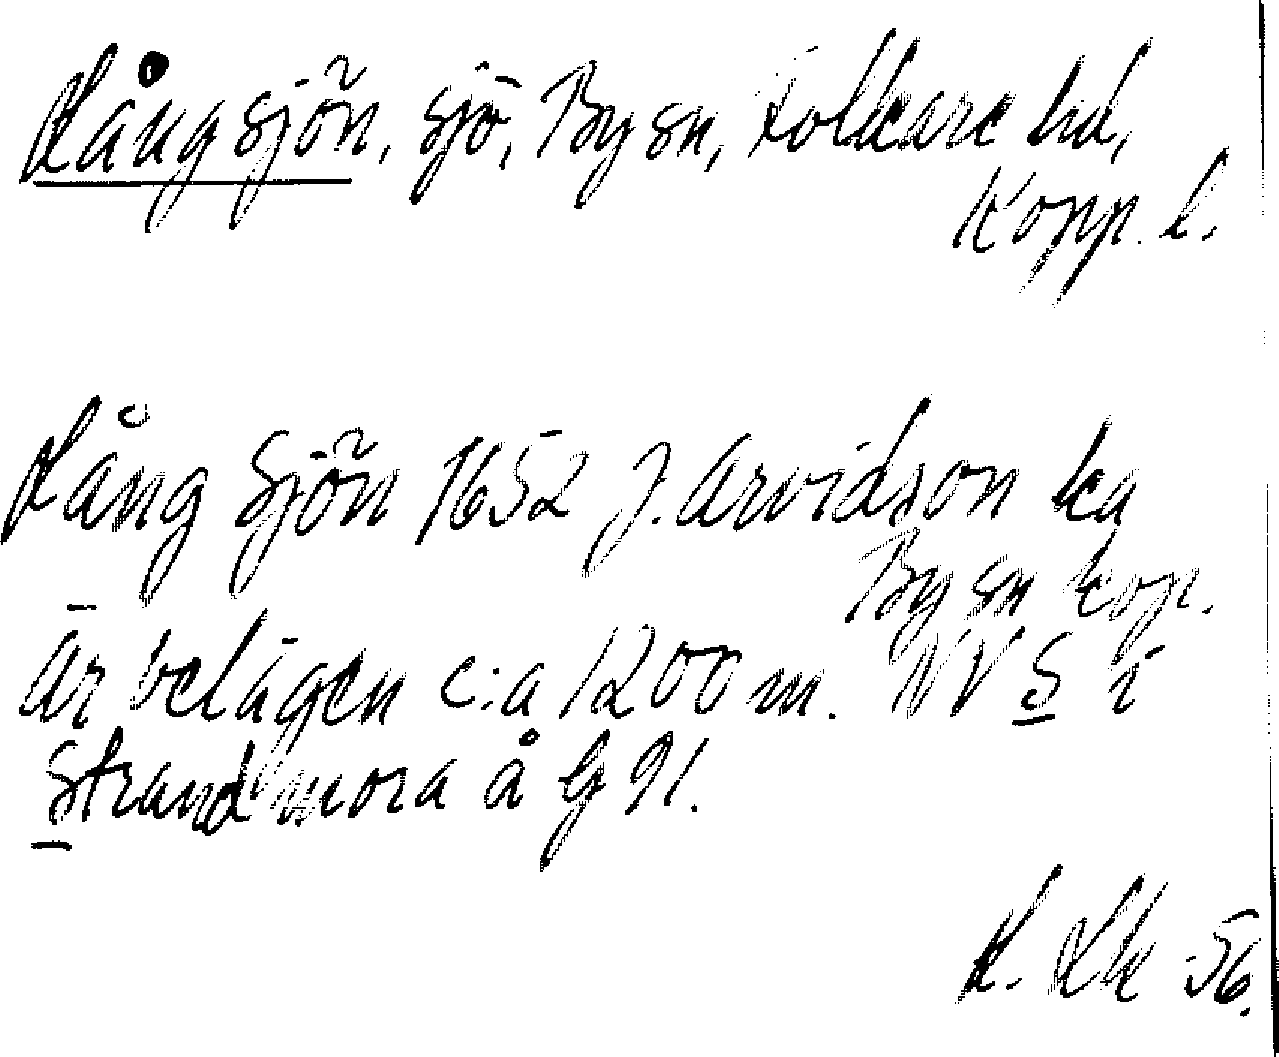 Långsjön, sjö, By sn, Folkare hd,
Kopp. l.
Lång Sjön 1652 J. Arvidson ka
By sn kop.
Är belägen c:a 1200 m. NV S i
Strandmora å bl 91.